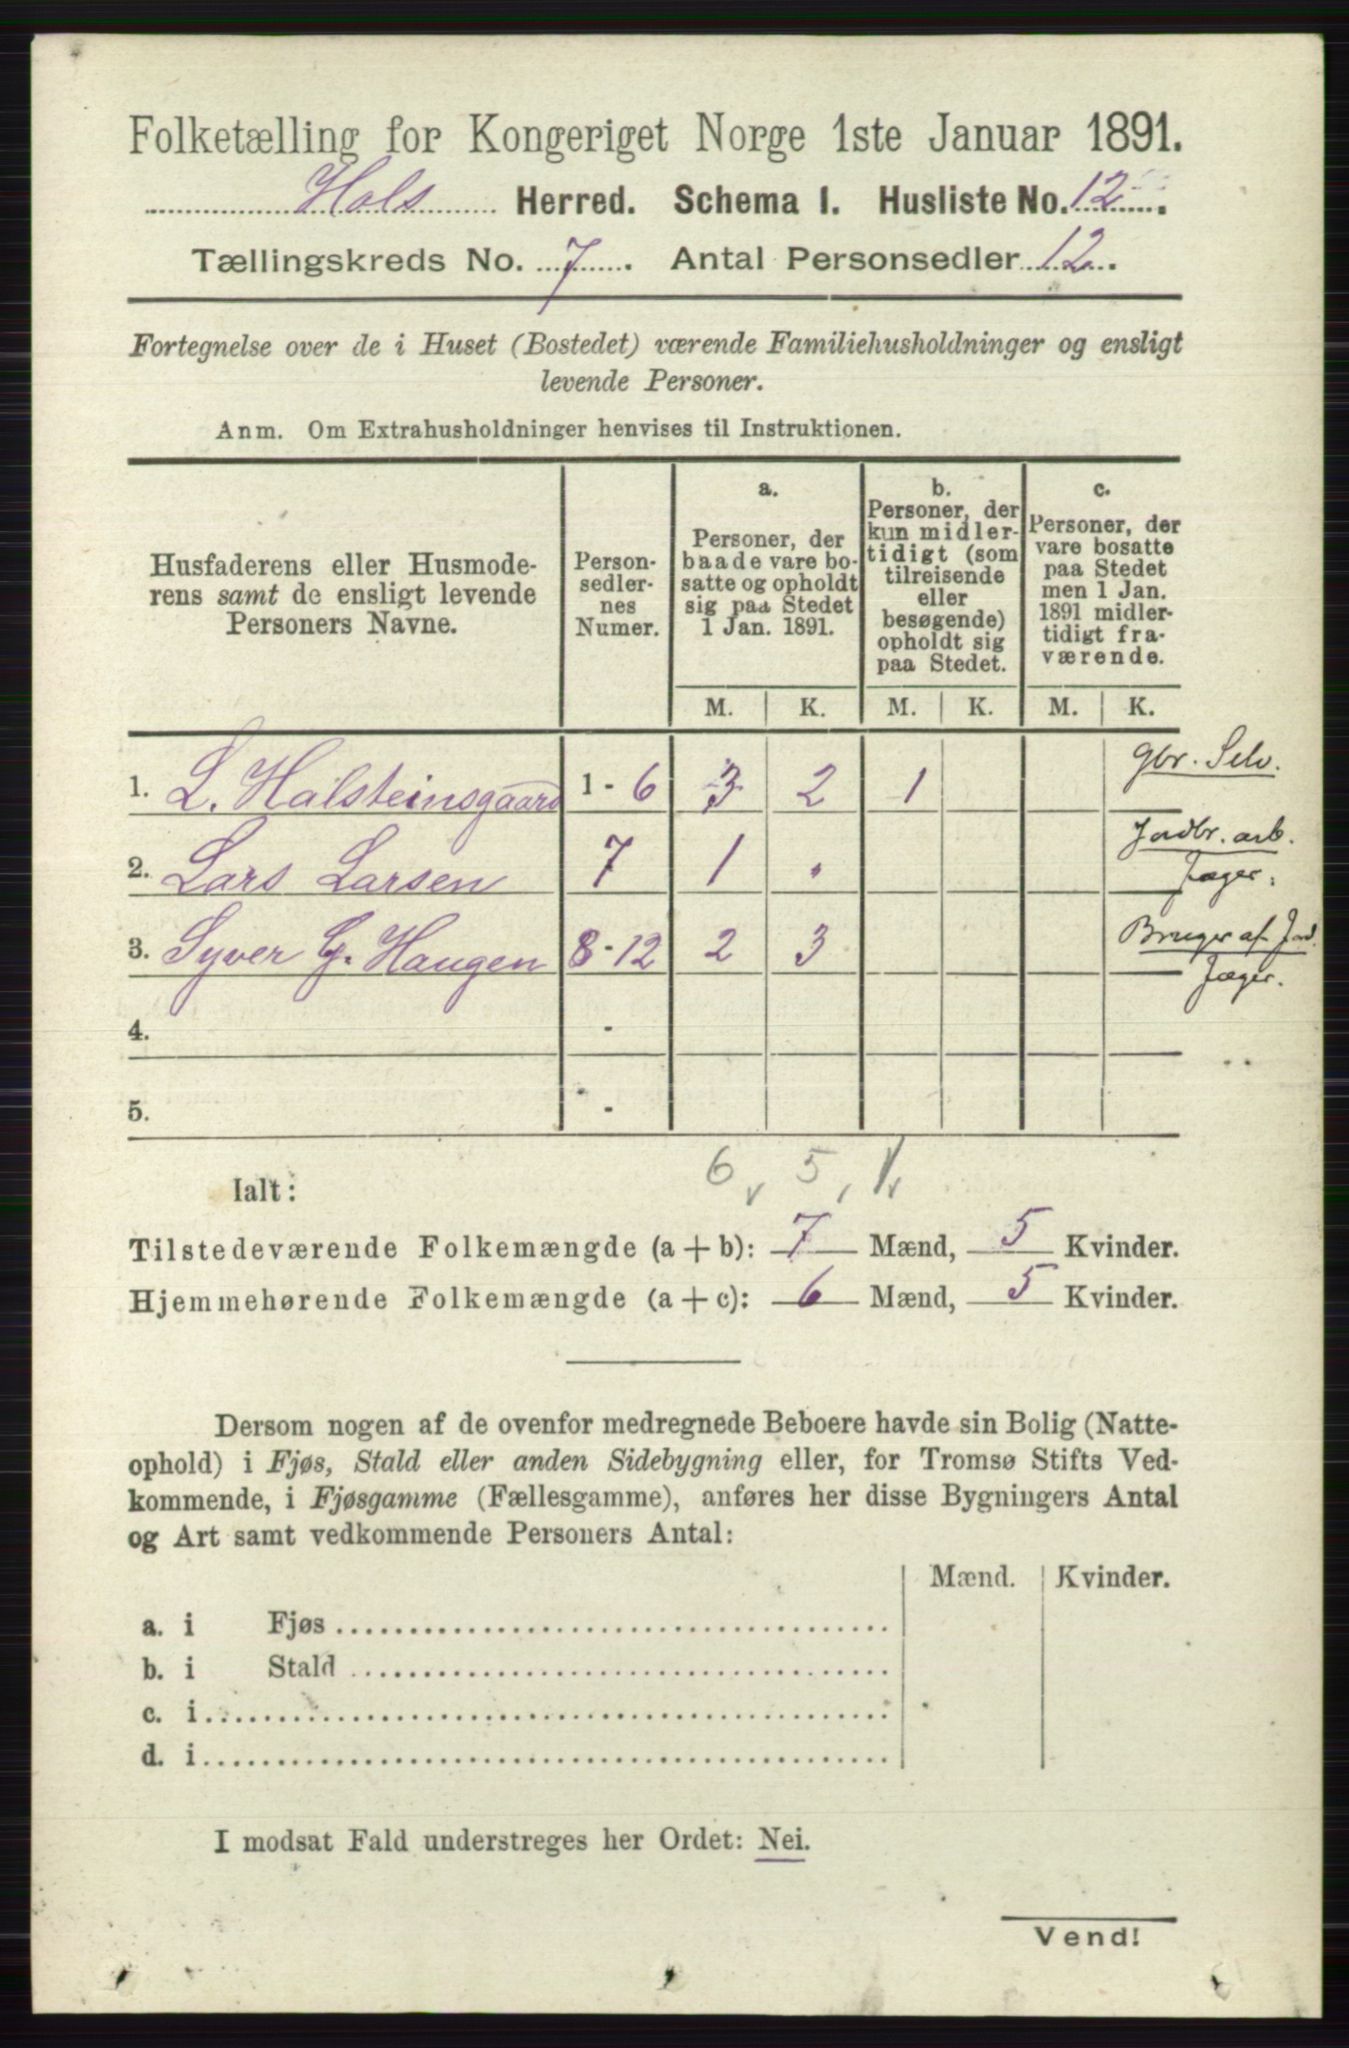 Folketælling for Kongeriget Norge 1ste Januar 1891.
Hols Herred. Schema 1. Husliste No. 12.
Tællingskreds No. 7. Antal Personsedler 12.
Fortegnelse over de i Huset (Bostedet) værende Familiehusholdninger og ensligt
levende Personer.
Anm. Om Extrahusholdninger henvises til Instruktionen.
Husfaderens eller Husmode-
rens samt de ensligt levende
Personers Navne.
Person-
sedler-
nes
Numer.
a.
Personer, der
baade vare bo-
satte og opholdt
sig paa Stedet
1 Jan. 1891.
b.
Personer, der
kun midler-
tidigt (som
tilreisende
eller
besøgende)
opholdt sig
paa Stedet.
c.
Personer, der
vare bosatte
paa Stedet
men 1 Jan.
1891 midler-
tidigt fra-
værende.
M. K. M. K. M. K.
1. L. Halsteinsgaard 1 - 6 3 2 1 Gbr. Selv.
2. Lars Larsen 7 1 . Jordbr. arb.
Jæger.
3. Syver G. Haugen 8 - 12 2 3 Bruger af Jord.
Jæger.
4. -
5. -
6, 5, 1,
Ialt:
Tilstedeværende Folkemængde (a + b): 7 Mænd, 5 Kvinder.
Hjemmehørende Folkemængde (a + c): 6 Mænd, 5 Kvinder.
Dersom nogen af de ovenfor medregnede Beboere havde sin Bolig (Natte-
ophold) i Fjøs, Stald eller anden Sidebygning eller, for Tromsø Stifts Ved-
kommende, i Fjøsgamme (Fællesgamme), anføres her disse Bygningers Antal
og Art samt vedkommende Personers Antal:
Mænd. Kvinder.
a. i Fjøs
b. i Stald
c. i
d. i
I modsat Fald understreges her Ordet: Nei.
Vend!